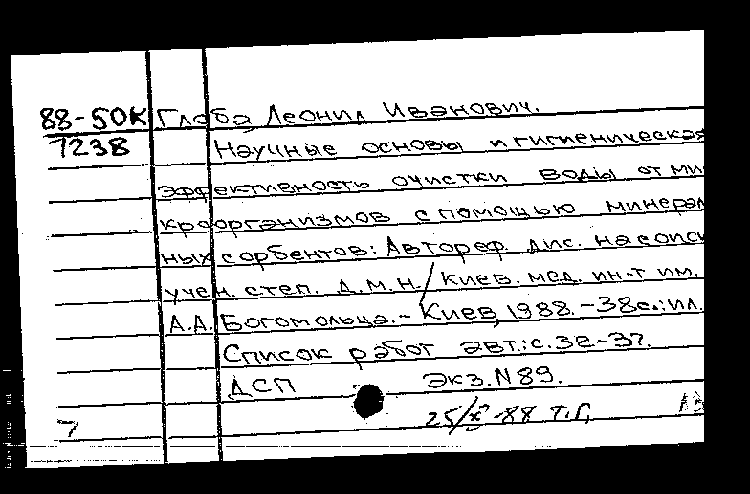 88-50К Глоба Леонид Иванович.
7238 Научные основы и гигиеническая
эффективность очистки воды от ми-
кроорганизмов с помощью минераль
ных сорбентов: Автореф. дис. на соиск
учен. степ. д.м.н./Киев. мед. ин-т им.
А.А. Богомольца.- Киев, 1988.-38с.:ил.
Список работ авт.: с. 32-37.
ДСП Экз.N89.
7 25/X-88 Т.Г,